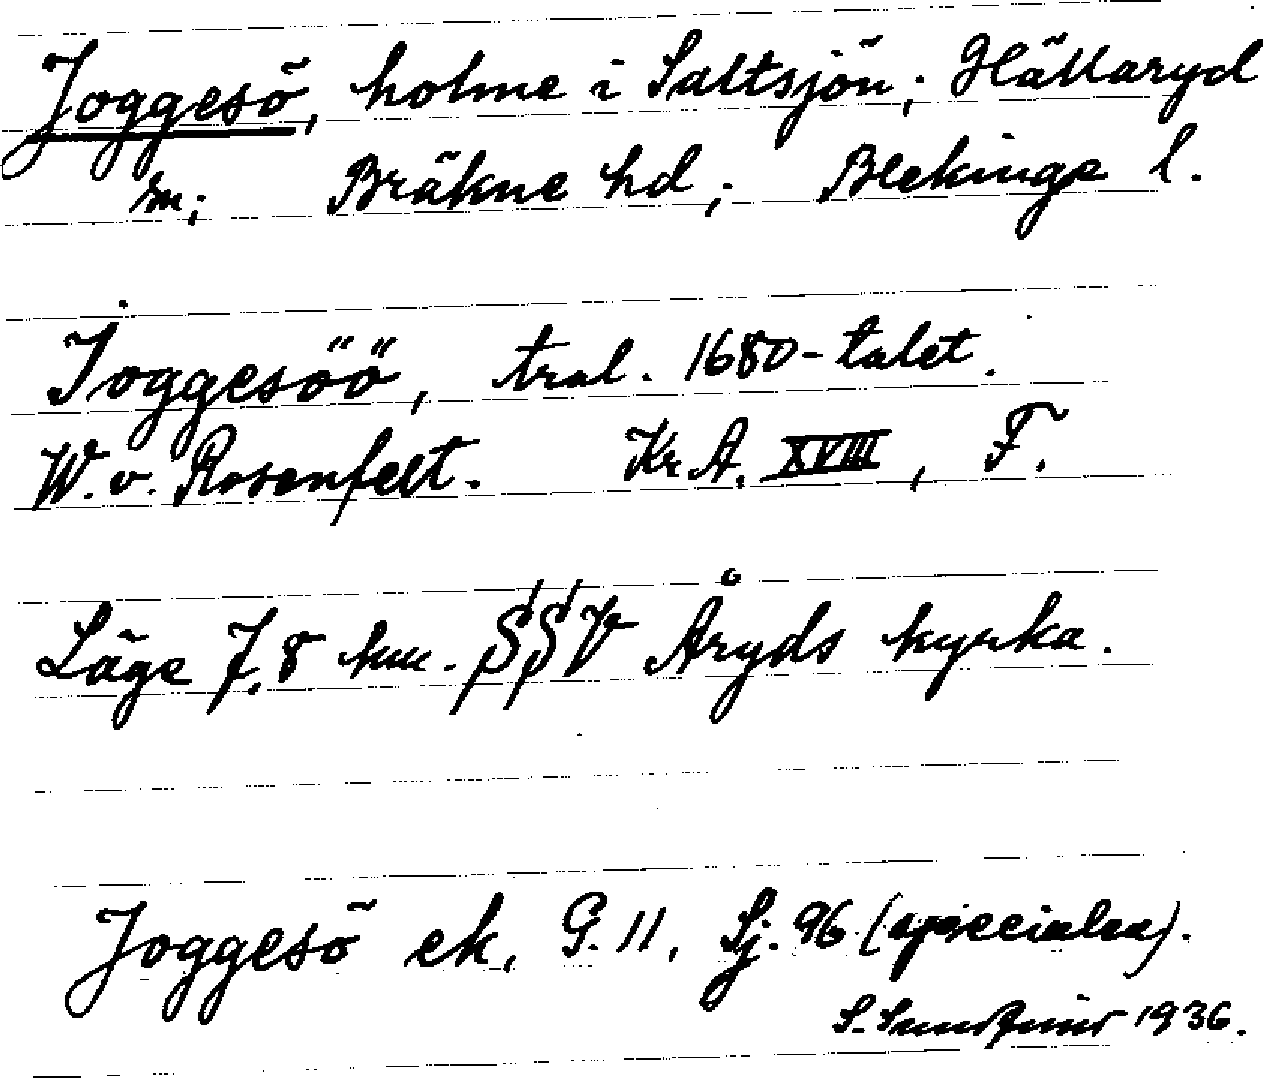 Joggesö, holme i Saltsjön; Hällaryd
sn; Bräkne hd; Blekinge l.
Joggesöö, tral. 1680-talet.
W. v. Rosenfelt. Kr. A. XVIII, F.
Läge 7,8 km. SSV Åryds kyrka.
Joggesö ek. G. 11, Sj. 96 (specialen).
S. 1936.